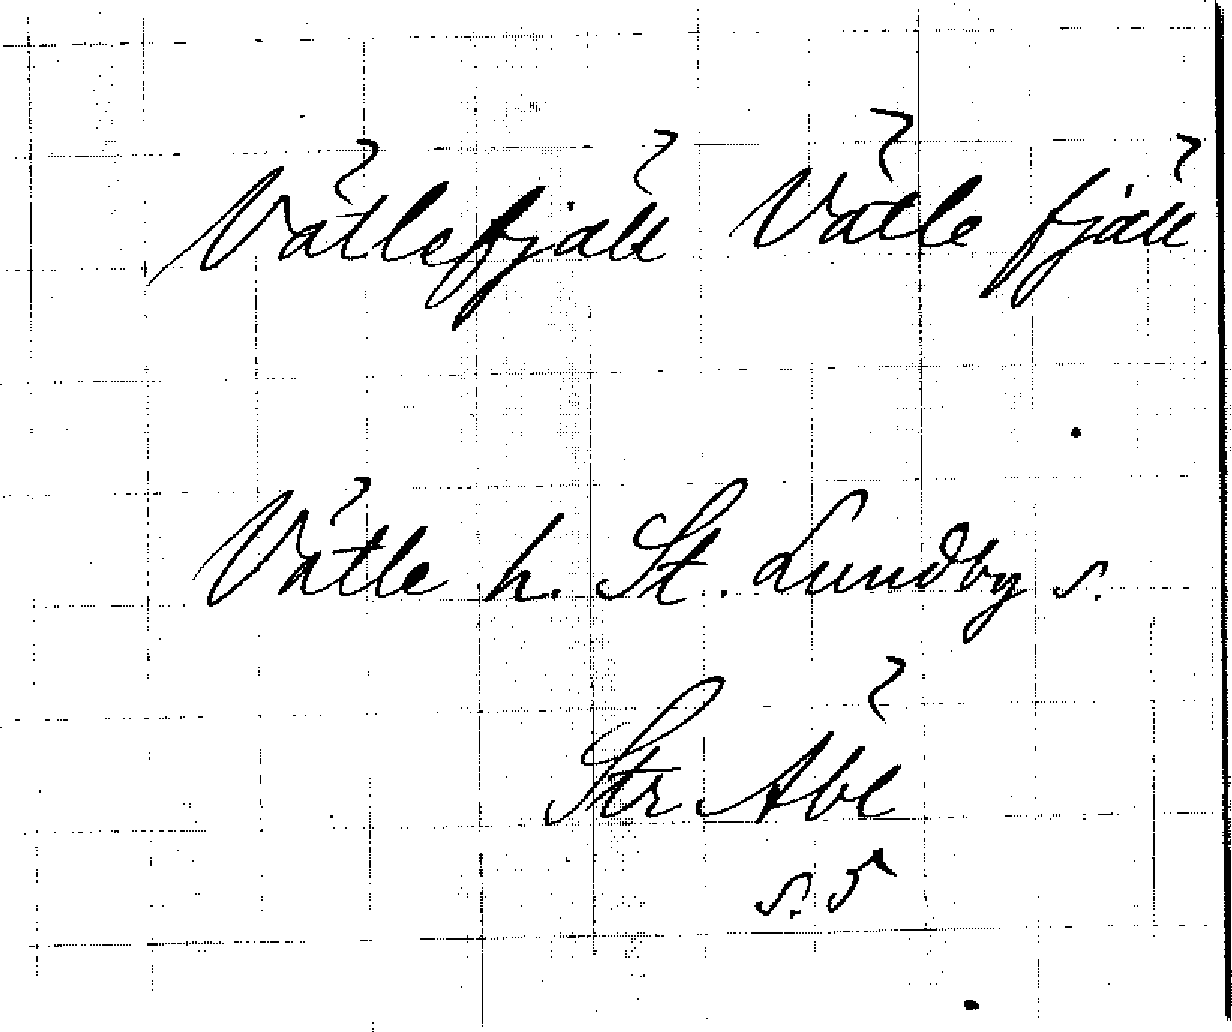 Vätlefjäll Vätle fjäll
Vätle h. St. Lundby s.
Str Abl
s. 5